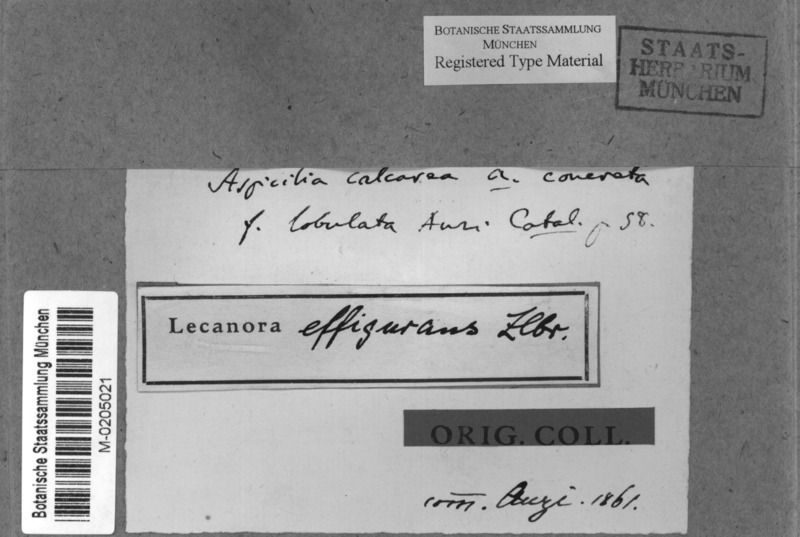 BOTANISCHE STAATSSAMMLUNG
MÜNCHEN
Registered Type Material
STAATS-
HERBARIUM
MÜNCHEN
Aspicilia calcarea a. concreta
f. lobulata Anzi Catal. p 58.
Lecanora effigurans Zlbr.
ORIG. COLL.
com. Anzi. 1861.
Botanische Staatssammlung München
M-0205021